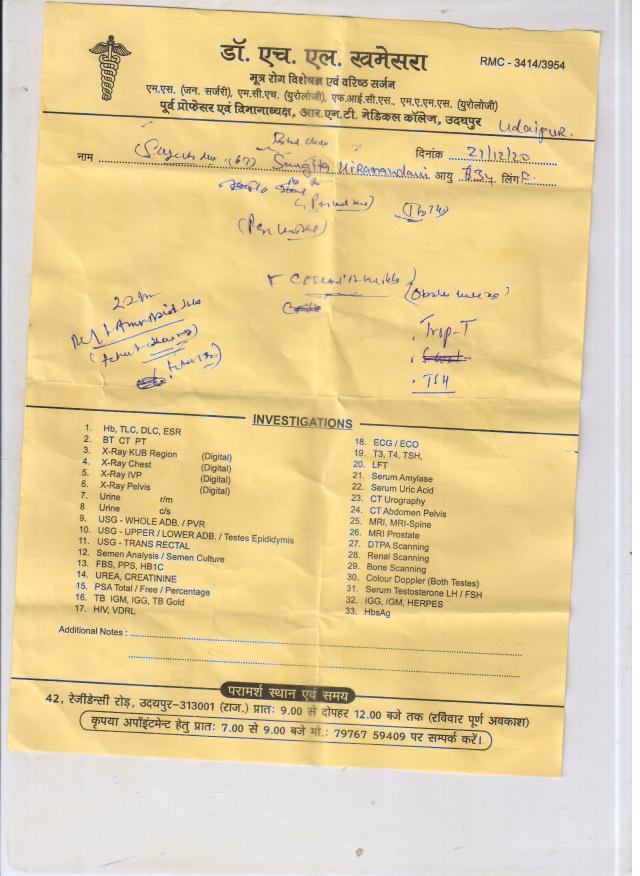 डॉ. एच. एल. खमेसरा
RMC - 3414/3954
मूत्र रोग विशेषज्ञ एवं वरिष्ठ सर्जन
एम.एस. (जन. सर्जरी), एम.सी.एच. (युरोलोजी), एफ.आई.सी.एस., एम.ए.एम.एस. (युरोलोजी)
पूर्व प्रोफेसर एवं विभागाध्यक्ष, आर.एन.टी. मेडिकल कॉलेज, उदयपुर
Udaipur.
नाम Sangita Hiranandani दिनांक 21/12/20
आयु लिंग F.
22m
Trop-T
TSH
INVESTIGATIONS
1. Hb, TLC, DLC, ESR
2. BT CT PT
3. X-Ray KUB Region (Digital)
4. X-Ray Chest (Digital)
5. X-Ray IVP (Digital)
6. X-Ray Pelvis (Digital)
7. Urine r/m
8 Urine c/s
9. USG - WHOLE ADB. / PVR
10. USG - UPPER / LOWER ADB. / Testes Epididymis
11. USG - TRANS RECTAL
12. Semen Analysis / Semen Culture
13. FBS, PPS, HB1C
14. UREA, CREATININE
15. PSA Total / Free / Percentage
16. TB IGM, IGG, TB Gold
17. HIV, VDRL
18. ECG / ECO
19. T3, T4, TSH,
20. LFT
21. Serum Amylase
22. Serum Uric Acid
23. CT Urography
24. CT Abdomen Pelvis
25. MRI, MRI-Spine
26. MRI Prostate
27. DTPA Scanning
28. Renal Scanning
29. Bone Scanning
30. Colour Doppler (Both Testes)
31. Serum Testosterone LH / FSH
32. IGG, IGM, HERPES
33. HbsAg
Additional Notes :
परामर्श स्थान एवं समय
42, रेजीडेन्सी रोड़, उदयपुर-313001 (राज.) प्रातः 9.00 से दोपहर 12.00 बजे तक (रविवार पूर्ण अवकाश)
कृपया अपॉइंटमेन्ट हेतु प्रातः 7.00 से 9.00 बजे मो.: 79767 59409 पर सम्पर्क करें।